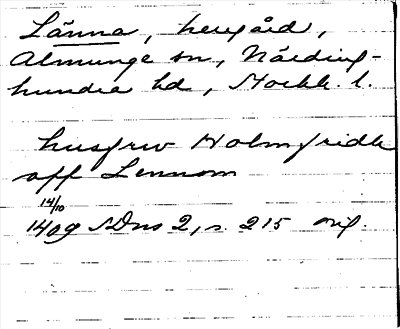 Länna, herrgård,
Almunge sn, Närding-
hundra hd, Stockh. l.
husfrw Holmfridh
aff Lennom
14/10
1409 SDns 2, s. 215 orig.